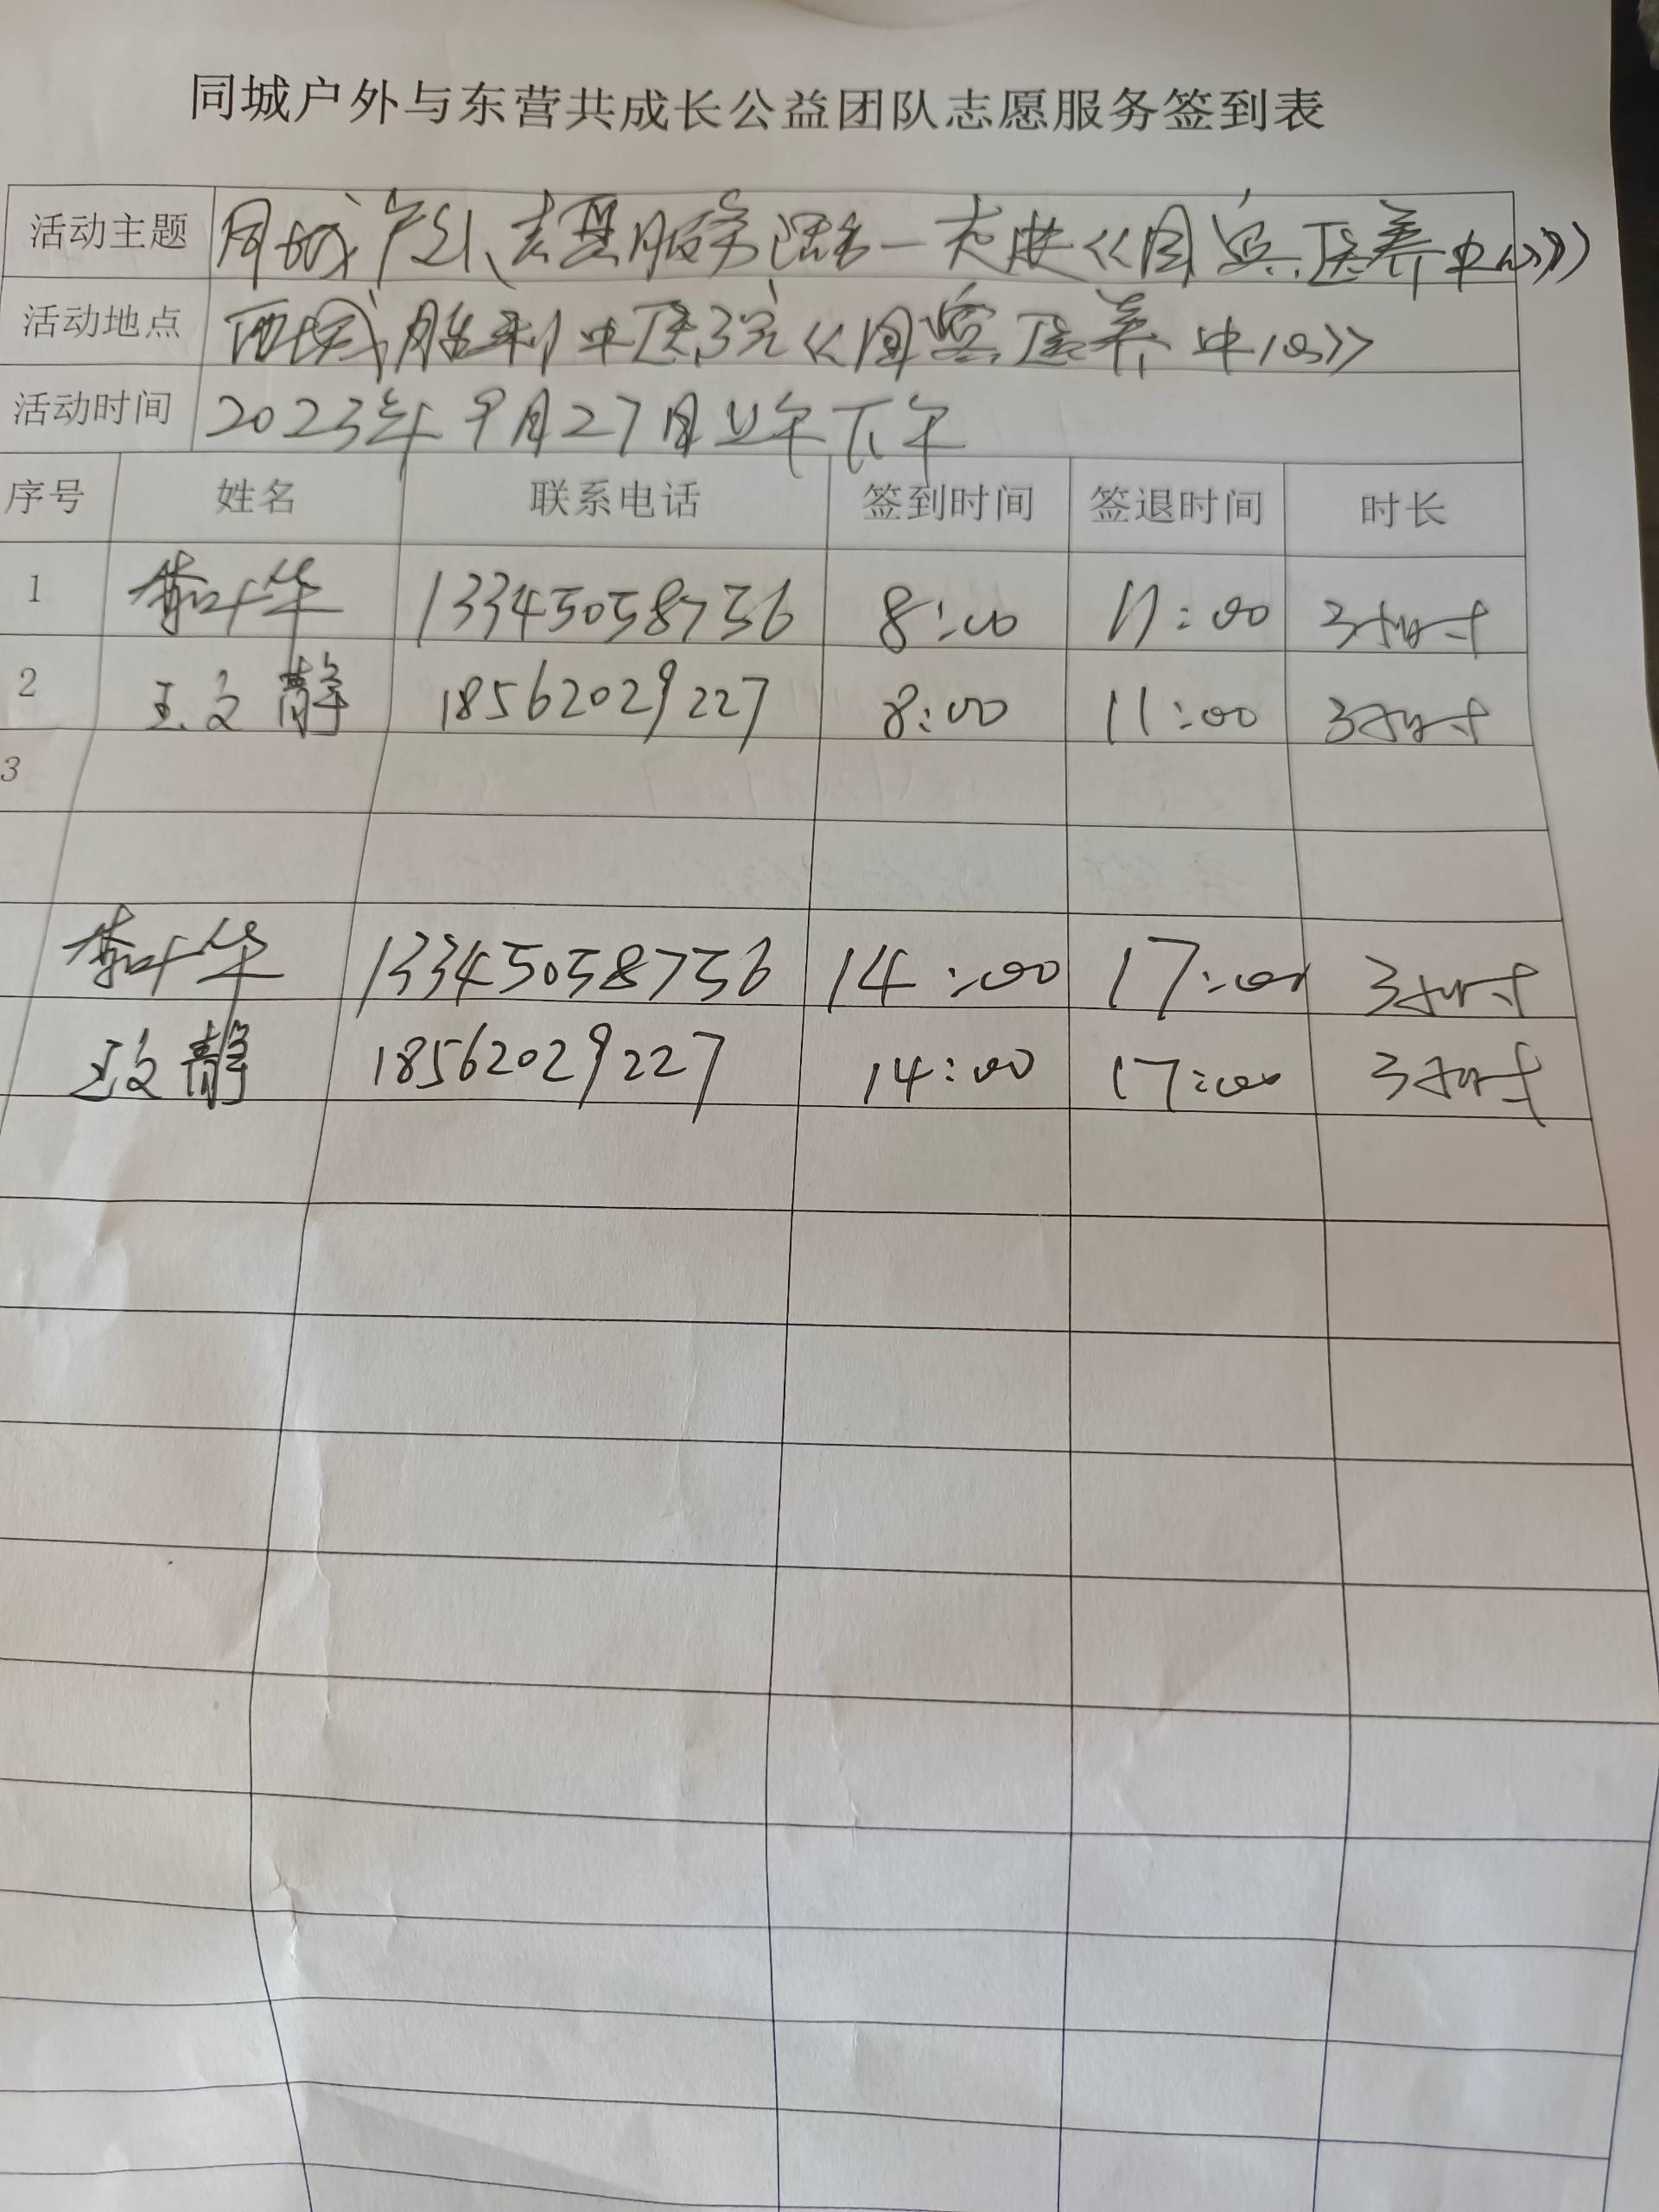 同城户外与东营共成长公益团队志愿服务签到表
活动主题 同城户外志愿服务活动一走进《国宾医养中心》
活动地点 西城胜利中医院《国宾医养中心》
活动时间 2023年9月27日上午下午
序号 姓名 联系电话 签到时间 签退时间 时长
1 叶华 13345058756 8:00 11:00 3小时
2 王文静 18562029227 8:00 11:00 3小时
3
叶华 13345058756 14:00 17:00 3小时
王文静 18562029227 14:00 17:00 3小时